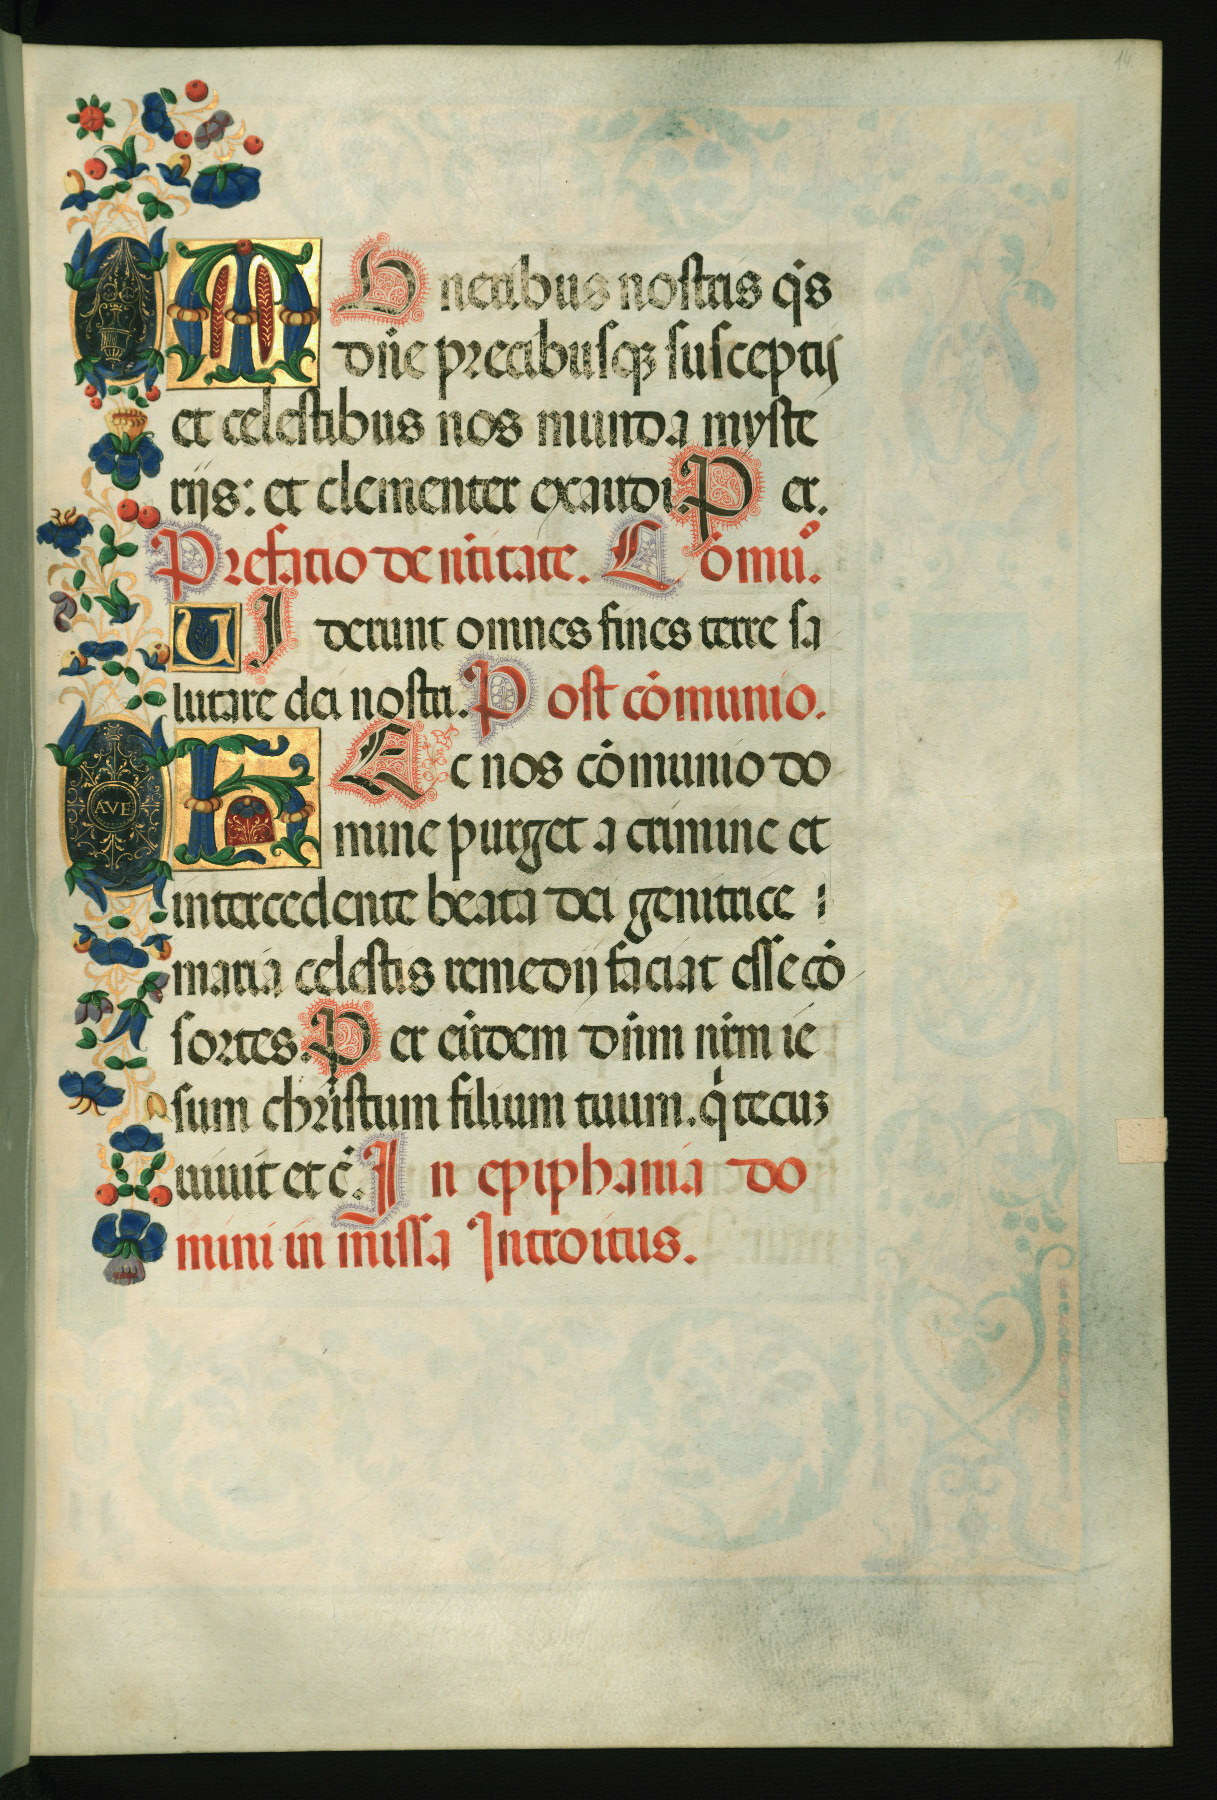 MUneribus nostris q̇s
dn̄e precibusqꝫ susceptis
et celestibus nos munda myste
rijs: et clementer exaudi. Per.
Prefatio de n̄titate. Cōmu̅.
UIderunt omnes fines terre sa
lutare dei nostri. Post cōmunio.
HEc nos cōmunio do
mine purget a crimine et
intercedente beata dei genitrice
maria celestis remedij faciat esse cō
sortes. Per eūdem dn̄m nr̄m ie
sum christum filium tuum. q̇ tecuꝫ
viuit et c̄. In epiphania do
mini in missa Introitus.
AVE
14